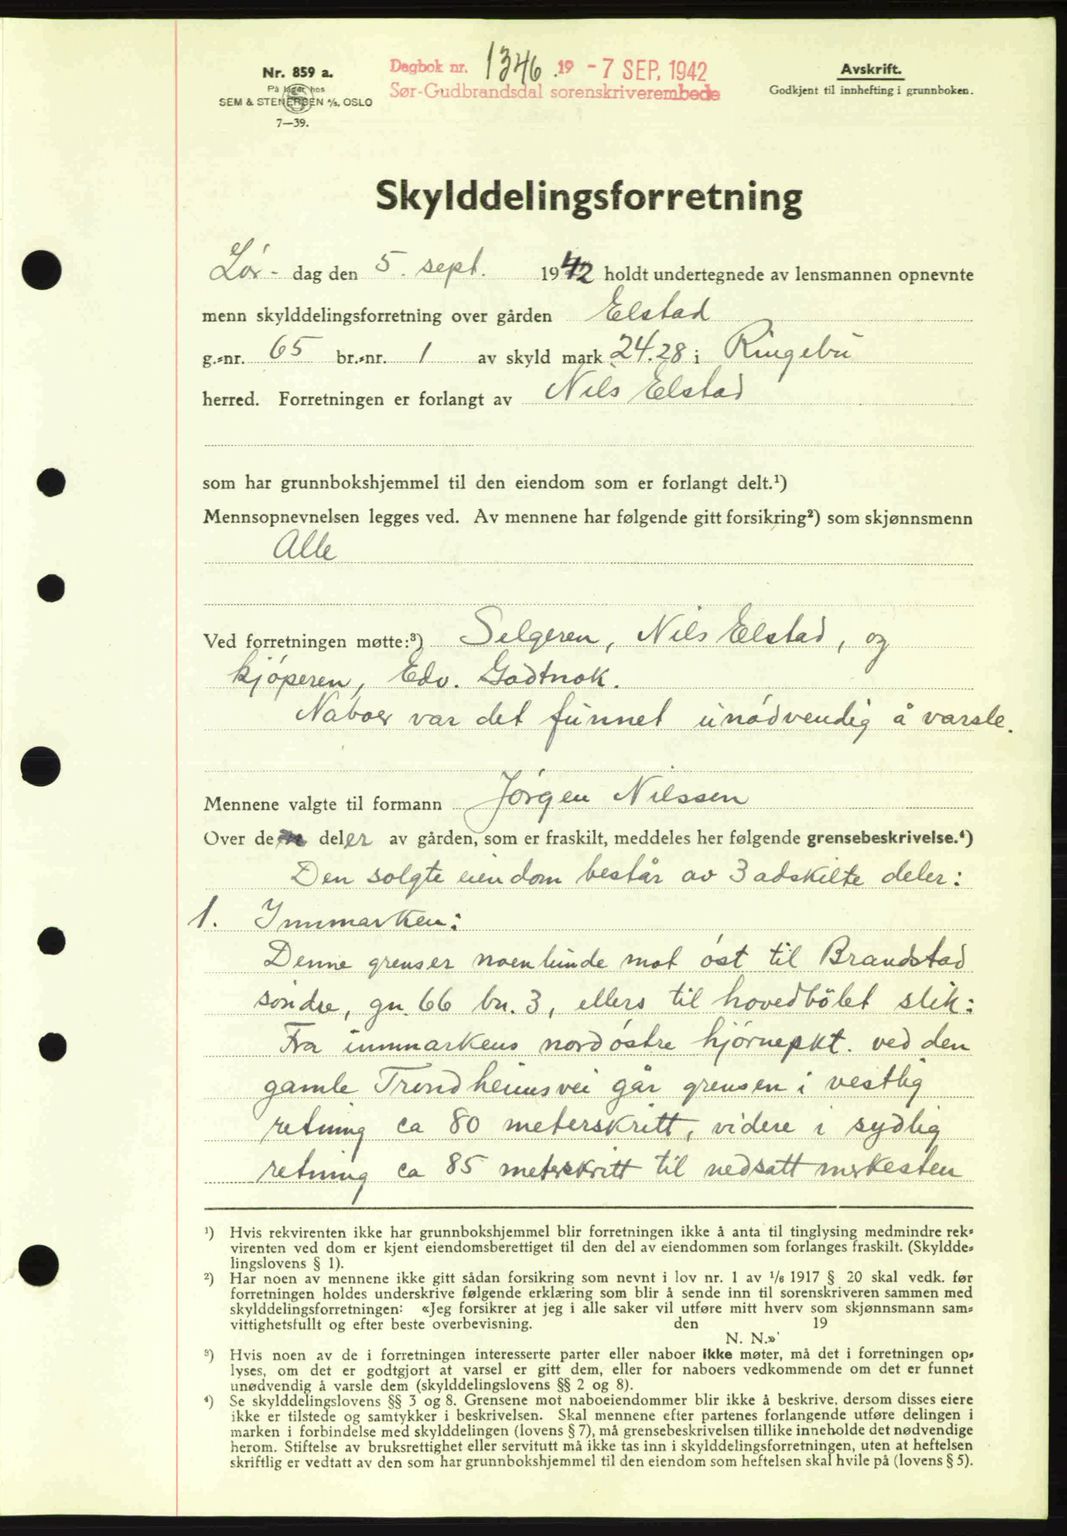 Nr. 859 a.
På lager hos
SEM & STENERSEN A/S, OSLO
7—39.
Dagbok nr. 1346. 19 - 7 SEP. 1942
Sør-Gudbrandsdal sorenskriverembede
Avskrift.
Godkjent til innhefting i grunnboken.
Skylddelingsforretning
Lør- dag den 5. sept. 1942 holdt undertegnede av lensmannen opnevnte
menn skylddelingsforretning over gården Elstad
g.-nr. 65 br.-nr. 1 av skyld mark 24.28 i Ringebu
herred. Forretningen er forlangt av Nils Elstad
som har grunnbokshjemmel til den eiendom som er forlangt delt.¹)
Mennsopnevnelsen legges ved. Av mennene har følgende gitt forsikring²) som skjønnsmenn
Alle
Ved forretningen møtte:³) Selgeren, Nils Elstad, og
kjøperen, Edv. Godtnok.
Naboer var det funnet unødvendig å varsle.
Mennene valgte til formann Jørgen Nilssen
Over de deler av gården, som er fraskilt, meddeles her følgende grensebeskrivelse.⁴)
Den solgte eiendom består av 3 adskilte deler:
1. Innmarken:
Denne grenser noenlunde mot øst til Brandstad
søndre, gn. 66 bn. 3, ellers til hovedbølet slik:
Fra innmarkens nordøstre hjørnepkt. ved den
gamle Trondheimsvei går grensen i vestlig
retning ca 80 meterskritt, videre i sydlig
retning ca 85 meterskritt til nedsatt merkesten
¹) Hvis rekvirenten ikke har grunnbokshjemmel blir forretningen ikke å anta til tinglysing medmindre rek-
virenten ved dom er kjent eiendomsberettiget til den del av eiendommen som forlanges fraskilt. (Skyldde-
lingslovens § 1).
²) Har noen av mennene ikke gitt sådan forsikring som nevnt i lov nr. 1 av ¹/₆ 1917 § 20 skal vedk. før
forretningen holdes underskrive følgende erklæring som blir å sende inn til sorenskriveren sammen med
skylddelingsforretningen: «Jeg forsikrer at jeg i alle saker vil utføre mitt hverv som skjønnsmann sam-
vittighetsfullt og efter beste overbevisning. den 19
N. N.»
³) Hvis noen av de i forretningen interesserte parter eller naboer ikke møter, må det i forretningen op-
lyses, om det er godtgjort at varsel er gitt dem, eller for naboers vedkommende om det er funnet
unødvendig å varsle dem (skylddelingslovens §§ 2 og 8).
⁴) Se skylddelingslovens §§ 3 og 8. Grensene mot naboeiendommer blir ikke å beskrive, dersom disses eiere
ikke er tilstede og samtykker i beskrivelsen. Skal mennene efter partenes forlangende utføre delingen i
marken i forbindelse med skylddelingen (lovens § 7), må grensebeskrivelsen tillike inneholde det nødvendige
herom. Stiftelse av bruksrettighet eller servitutt må ikke tas inn i skylddelingsforretningen, uten at heftelsen
skriftlig er vedtatt av den som har grunnbokshjemmel til den eiendom som heftelsen skal hvile på (lovens § 5).